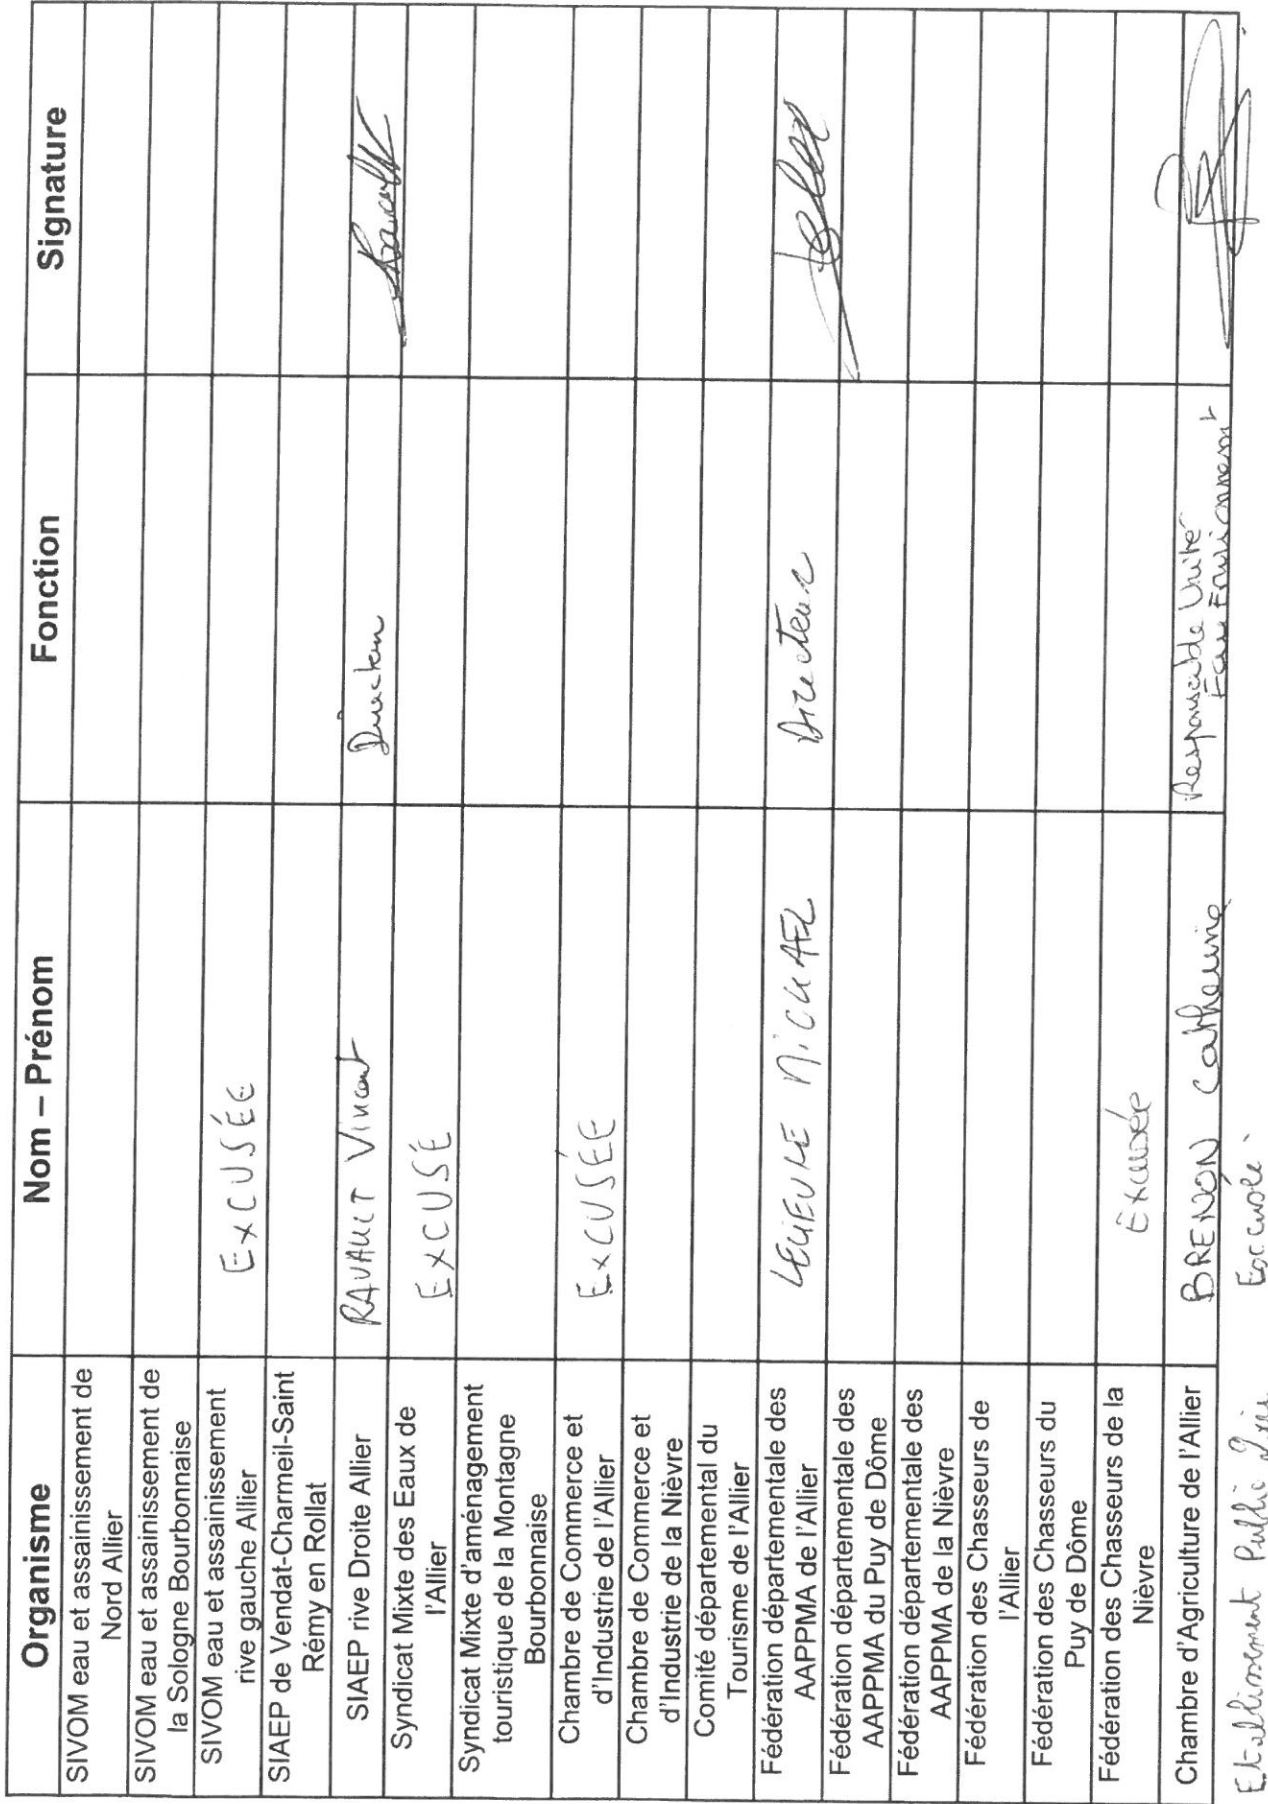 Organisme Nom – Prénom Fonction Signature
SIVOM eau et assainissement de
Nord Allier
SIVOM eau et assainissement de
la Sologne Bourbonnaise
SIVOM eau et assainissement
rive gauche Allier
EXCUSÉE
SIAEP de Vendat-Charmeil-Saint
Rémy en Rollat
SIAEP rive Droite Allier RAVAULT Vincent Directeur
Syndicat Mixte des Eaux de
l'Allier
EXCUSÉ
Syndicat Mixte d'aménagement
touristique de la Montagne
Bourbonnaise
Chambre de Commerce et
d'Industrie de l'Allier
EXCUSÉE
Chambre de Commerce et
d'Industrie de la Nièvre
Comité départemental du
Tourisme de l'Allier
Fédération départementale des
AAPPMA de l'Allier
LELIEVRE MICKAEL Directeur
Fédération départementale des
AAPPMA du Puy de Dôme
Fédération départementale des
AAPPMA de la Nièvre
Fédération des Chasseurs de
l'Allier
Fédération des Chasseurs du
Puy de Dôme
Fédération des Chasseurs de la
Nièvre
Excusée
Chambre d'Agriculture de l'Allier BRENON Catherine Responsable Unité
Eau Environnement
Etablissement Public Excusé.